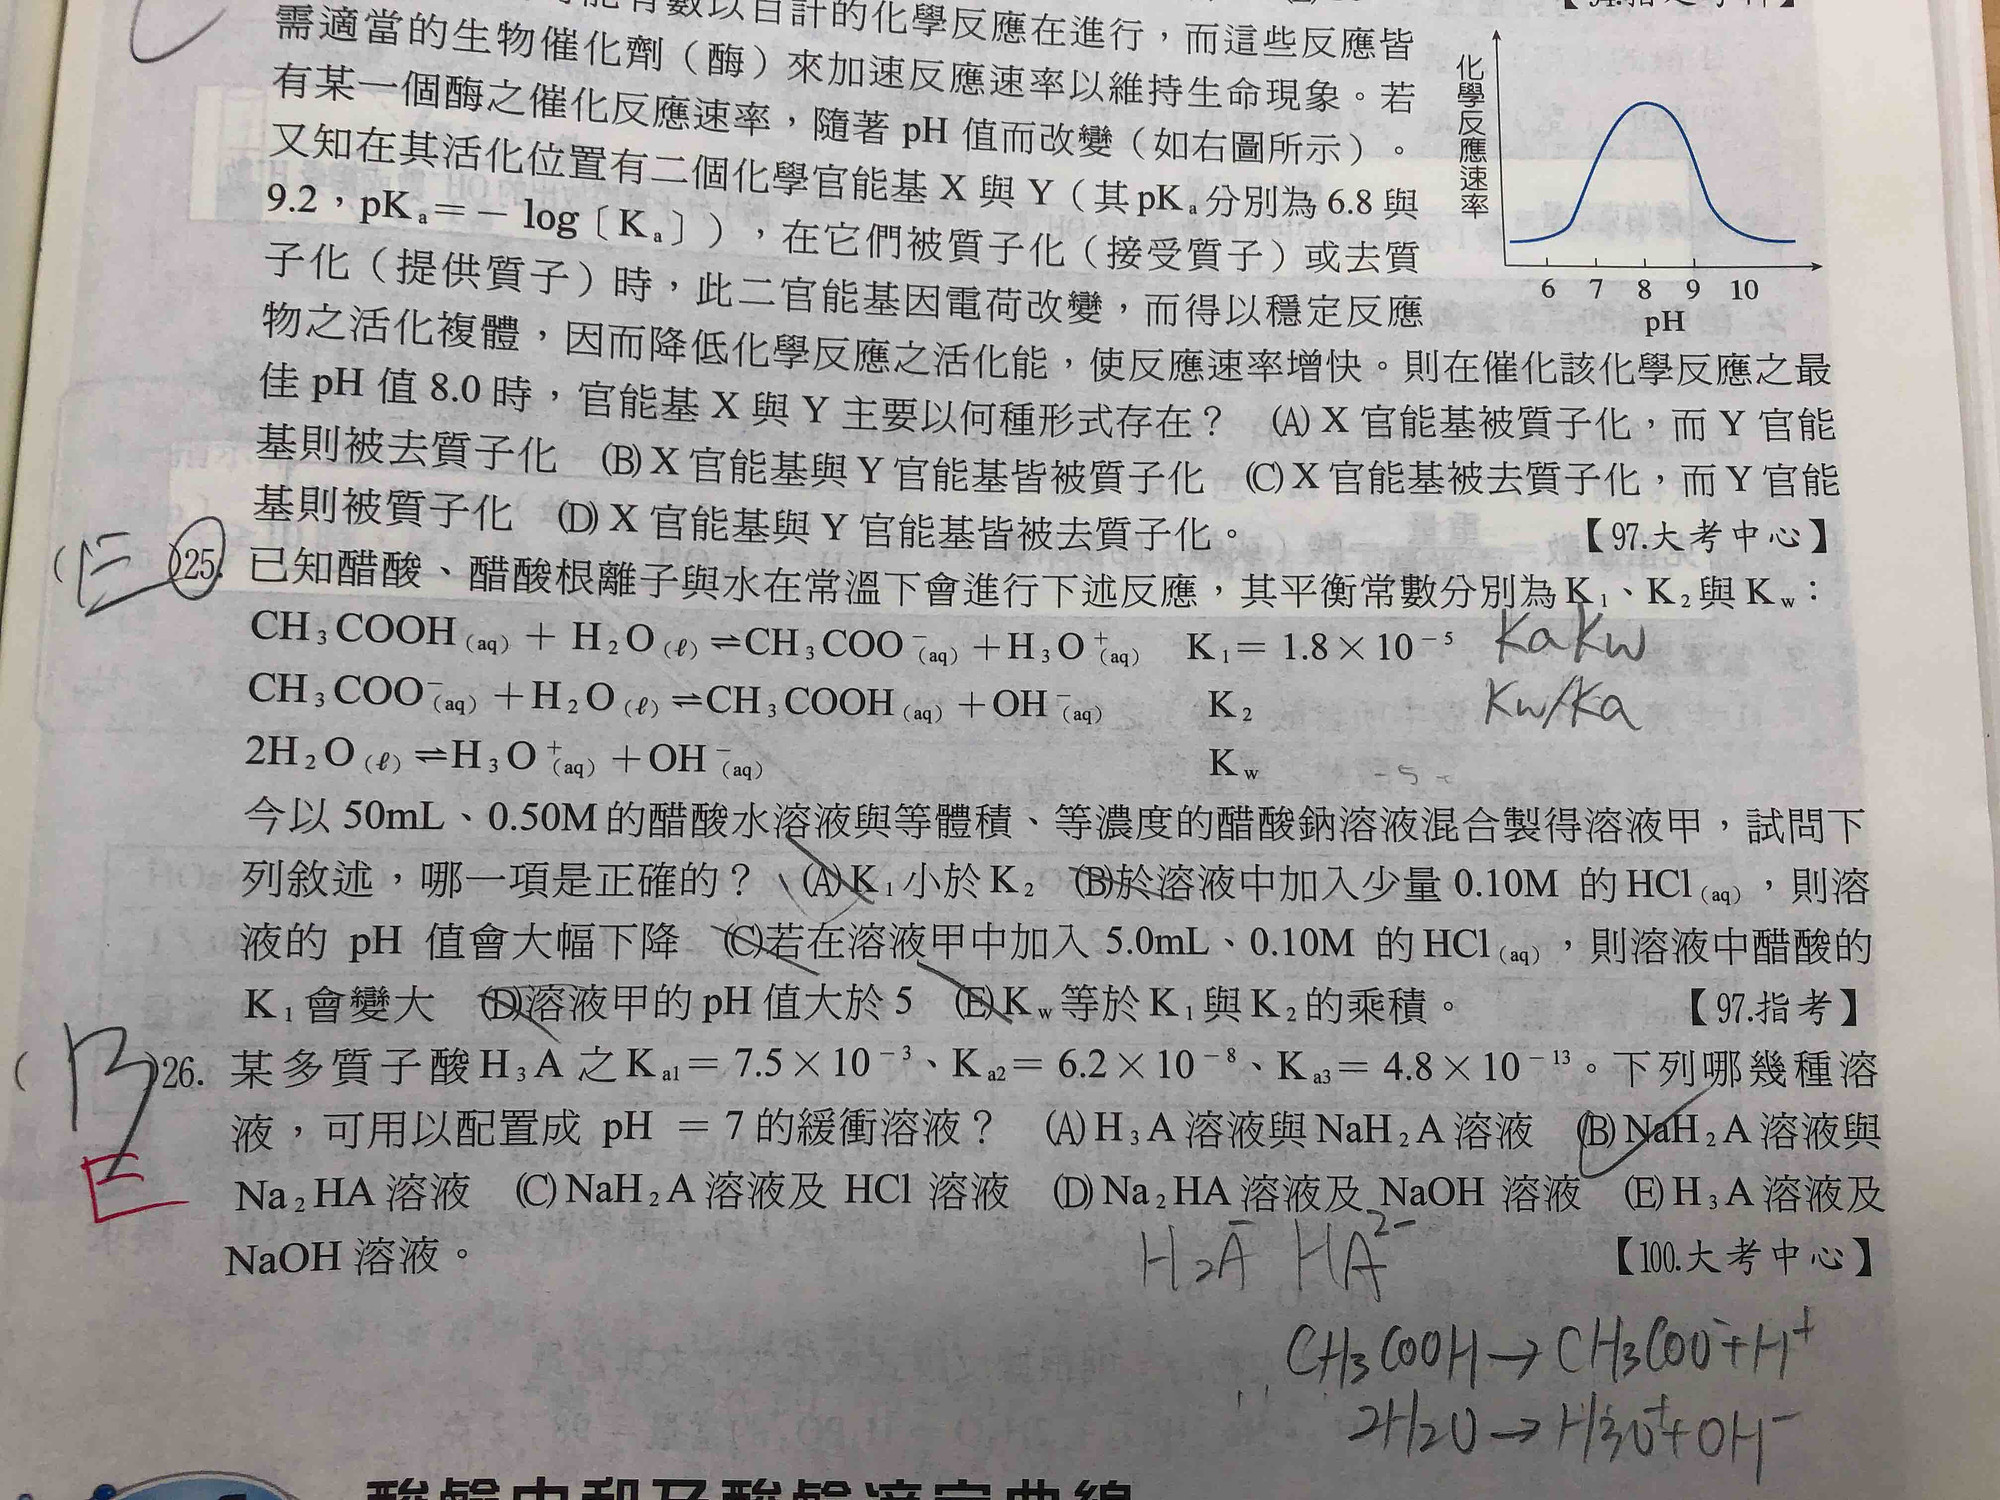 能有數以百計的化學反應在進行，而這些反應皆
需適當的生物催化劑（酶）來加速反應速率以維持生命現象。若
有某一個酶之催化反應速率，隨著 pH 值而改變（如右圖所示）。
又知在其活化位置有二個化學官能基 X 與 Y（其 pKₐ 分別為 6.8 與
9.2，pKₐ＝－log〔Kₐ〕），在它們被質子化（接受質子）或去質
子化（提供質子）時，此二官能基因電荷改變，而得以穩定反應
物之活化複體，因而降低化學反應之活化能，使反應速率增快。則在催化該化學反應之最
佳 pH 值 8.0 時，官能基 X 與 Y 主要以何種形式存在？ (A) X 官能基被質子化，而 Y 官能
基則被去質子化 (B) X 官能基與 Y 官能基皆被質子化 (C) X 官能基被去質子化，而 Y 官能
基則被質子化 (D) X 官能基與 Y 官能基皆被去質子化。 【97.大考中心】
化學反應速率
6 7 8 9 10
pH
(E)25. 已知醋酸、醋酸根離子與水在常溫下會進行下述反應，其平衡常數分別為 K₁、K₂ 與 Kw：
CH₃COOH(aq) ＋ H₂O(ℓ) ⇌ CH₃COO⁻(aq) ＋ H₃O⁺(aq) K₁＝ 1.8 × 10⁻⁵ KaKw
CH₃COO⁻(aq) ＋ H₂O(ℓ) ⇌ CH₃COOH(aq) ＋ OH⁻(aq) K₂ Kw/Ka
2H₂O(ℓ) ⇌ H₃O⁺(aq) ＋ OH⁻(aq) Kw
今以 50mL、0.50M 的醋酸水溶液與等體積、等濃度的醋酸鈉溶液混合製得溶液甲，試問下
列敘述，哪一項是正確的？ (A) K₁ 小於 K₂ (B)於溶液中加入少量 0.10M 的 HCl(aq)，則溶
液的 pH 值會大幅下降 (C)若在溶液甲中加入 5.0mL、0.10M 的 HCl(aq)，則溶液中醋酸的
K₁ 會變大 (D)溶液甲的 pH 值大於 5 (E) Kw 等於 K₁ 與 K₂ 的乘積。 【97.指考】
(B)26. 某多質子酸 H₃A 之 Ka1＝ 7.5 × 10⁻³、Ka2＝ 6.2 × 10⁻⁸、Ka3＝ 4.8 × 10⁻¹³。下列哪幾種溶
液，可用以配置成 pH ＝ 7 的緩衝溶液？ (A) H₃A 溶液與 NaH₂A 溶液 (B) NaH₂A 溶液與
E
Na₂HA 溶液 (C) NaH₂A 溶液及 HCl 溶液 (D) Na₂HA 溶液及 NaOH 溶液 (E) H₃A 溶液及
NaOH 溶液。 【100.大考中心】
H₂A⁻ HA²⁻
CH₃COOH → CH₃COO⁻+H⁺
2H₂O → H₃O⁺+OH⁻
酸鹼中和及酸鹼滴定曲線